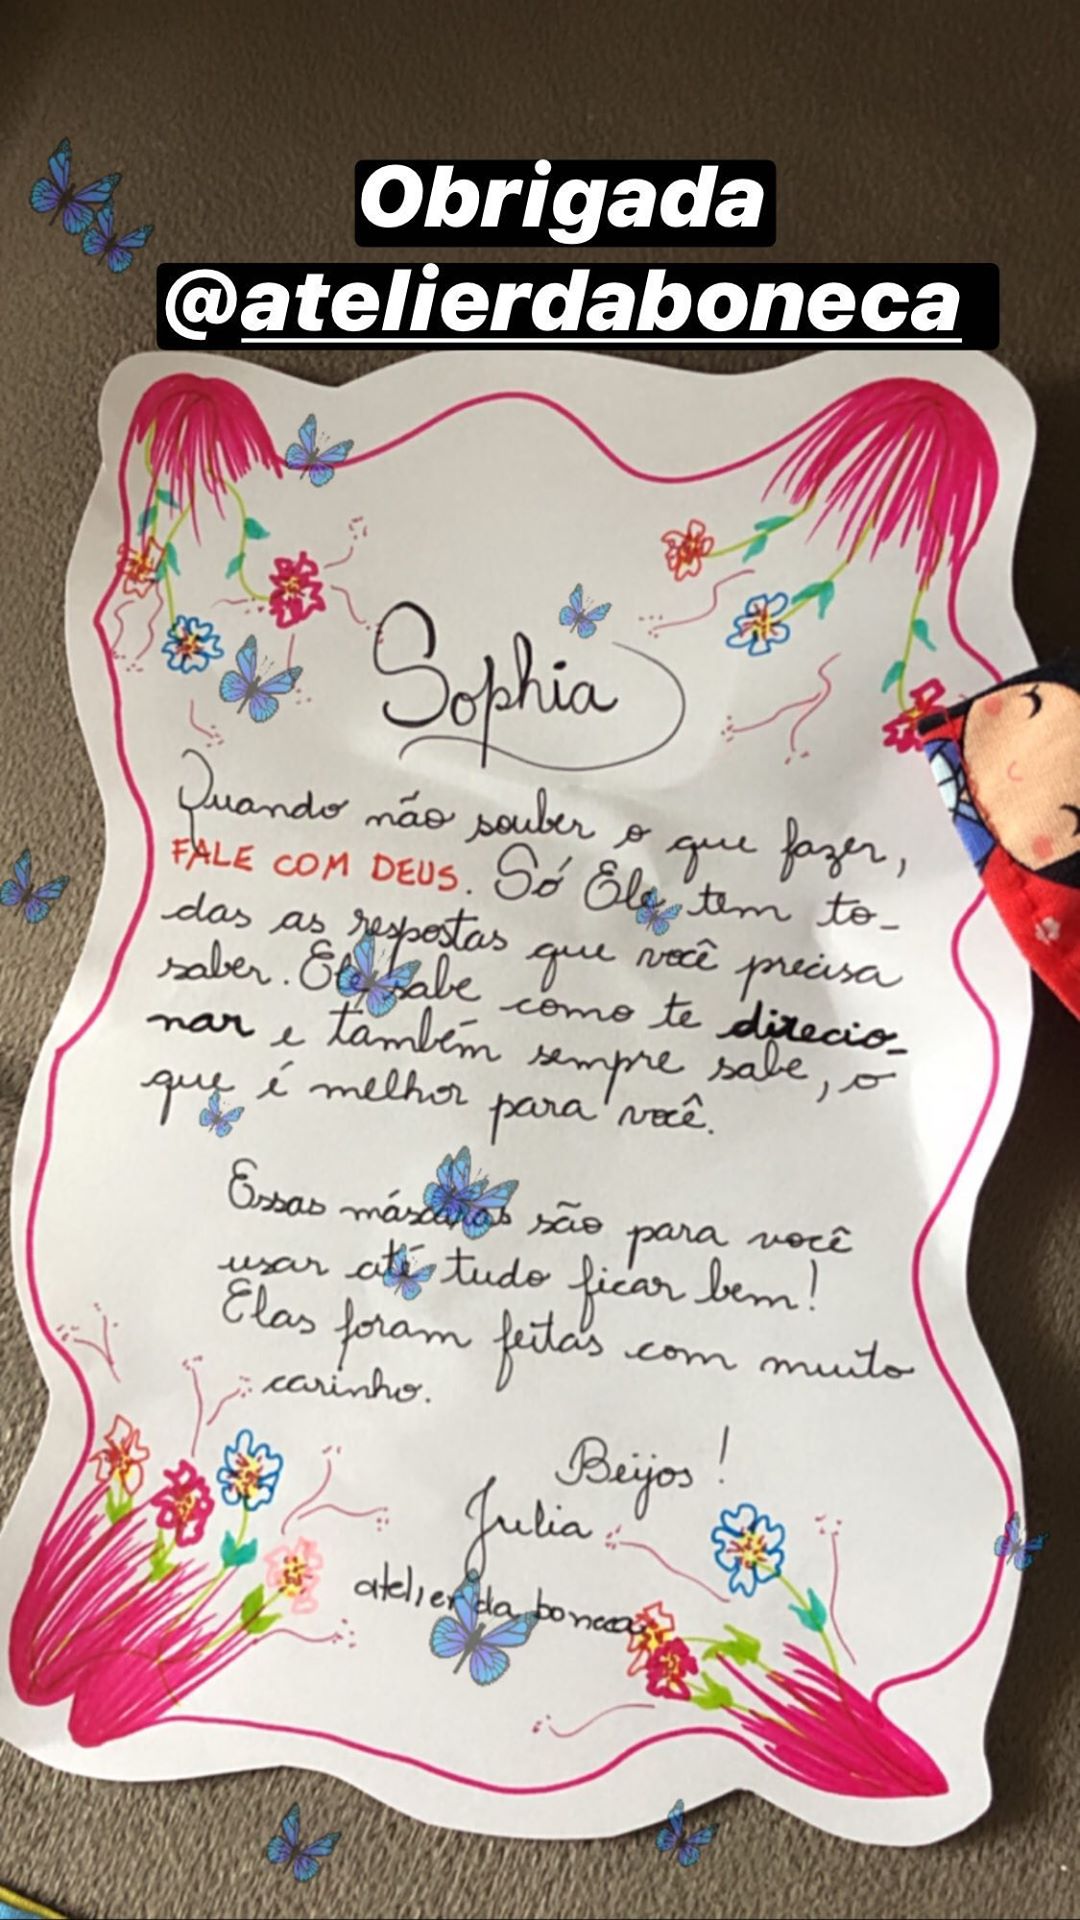 Obrigada
@atelierdaboneca
Sophia
Quando não souber o que fazer,
FALE COM DEUS. Só Ele tem to-
das as respostas que você precisa
saber. Ele sabe como te direcio-
nar e também sempre sabe, o
que é melhor para você.
Essas máscaras são para você
usar até tudo ficar bem!
Elas foram feitas com muito
carinho.
Beijos!
Julia
atelier da boneca